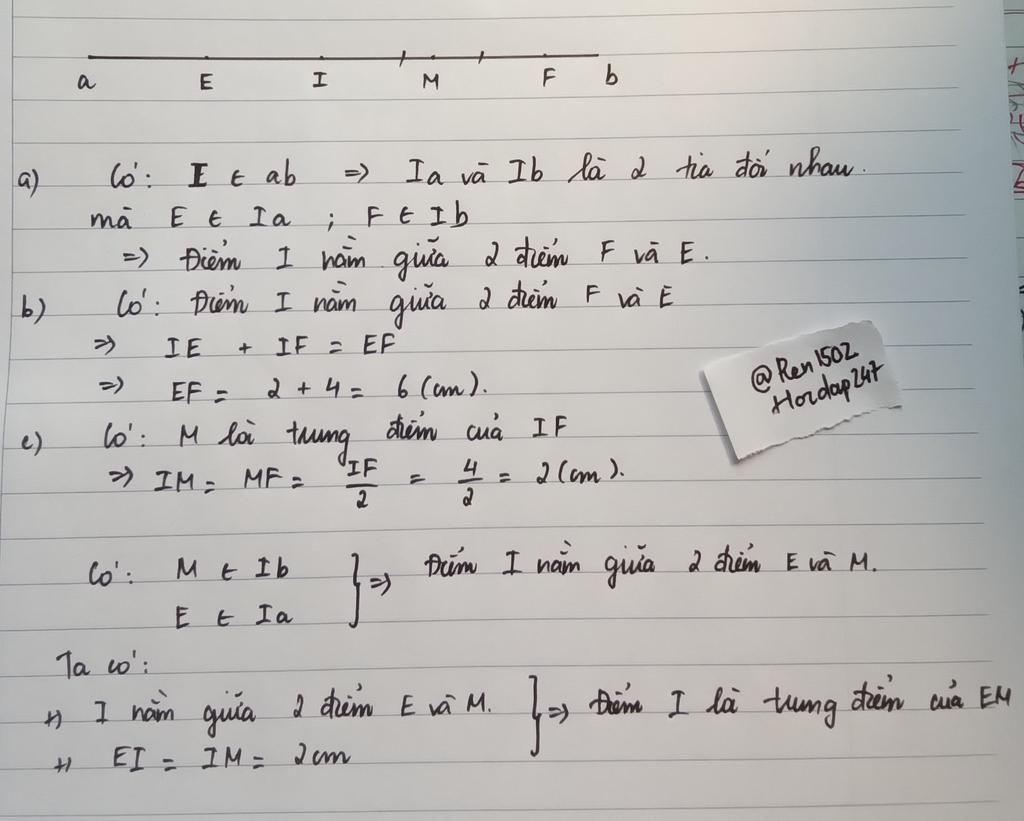 a E I M F b
a) Có: I ∈ ab => Ia và Ib là 2 tia đối nhau.
mà E ∈ Ia ; F ∈ Ib
=> Điểm I nằm giữa 2 điểm F và E.
b) Có: Điểm I nằm giữa 2 điểm F và E
=> IE + IF = EF
=> EF = 2 + 4 = 6 (cm).
@Ren1502
Hoidap247
c) Có: M là trung điểm của IF
=> IM = MF = IF/2 = 4/2 = 2 (cm).
Có: M ∈ Ib
E ∈ Ia } => Điểm I nằm giữa 2 điểm E và M.
Ta có:
+) I nằm giữa 2 điểm E và M.
+) EI = IM = 2cm } => Điểm I là trung điểm của EM